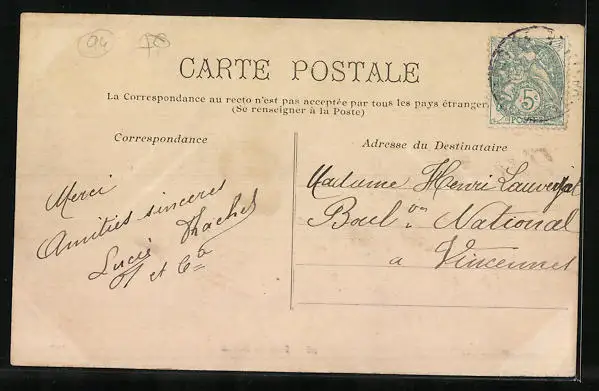 94 78
CARTE POSTALE
La Correspondance au recto n'est pas acceptée par tous les pays étranger
(Se renseigner à la Poste)
Correspondance
Adresse du Destinataire
5c
POSTES
Merci
Amitiés sincères
Lucie Rachel
et Cie
Madame Henri
Boulon National
a Vincennes